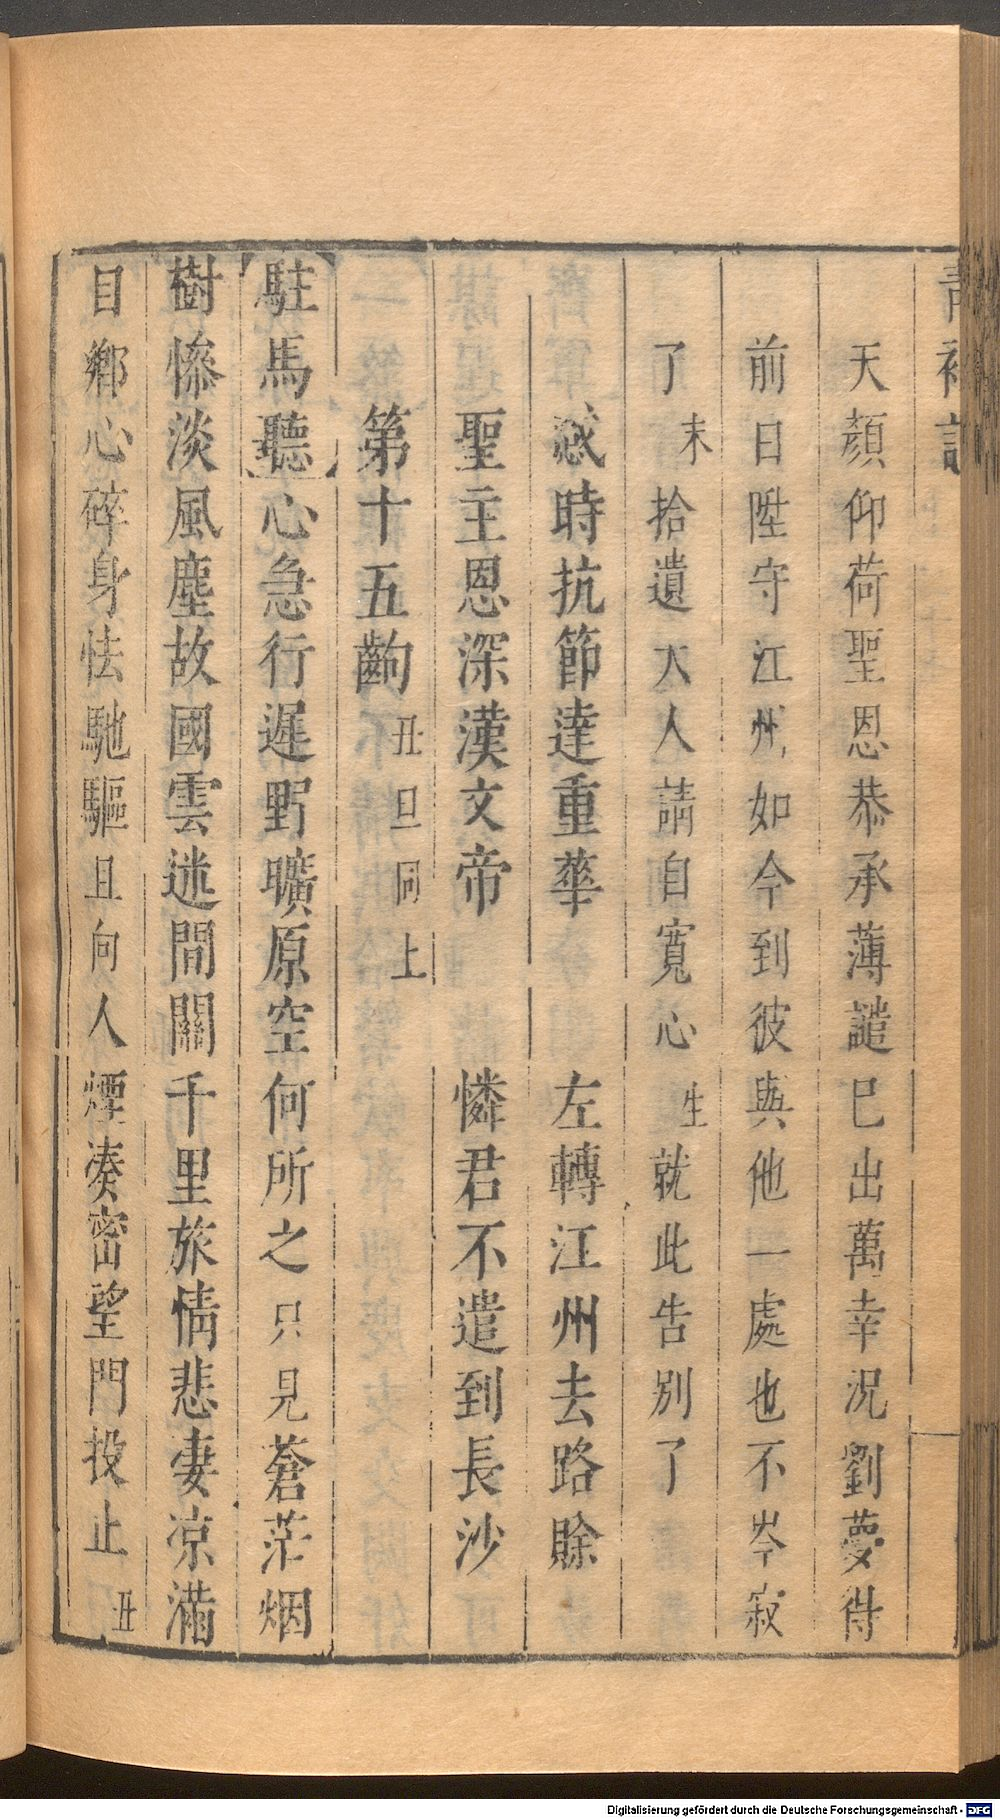 天顏仰荷聖恩恭承薄譴巳出萬幸況劉夢得
前日陞守江州如今到彼與他一處也不岑寂
了末拾遺大人請自寬心生就此告別了
感時抗節達重華 左轉江州去路賒
聖主恩深漢文帝 憐君不遣到長沙
第十五齣丑旦同上
駐馬聽心急行遲野曠原空何所之只見蒼茫烟
樹慘淡風塵故國雲迷間關千里旅情悲妻凉滿
目鄉心碎身怯馳驅且向人煙湊密望門投止丑
Digitalisierung gefördert durch die Deutsche Forschungsgemeinschaft - DFG